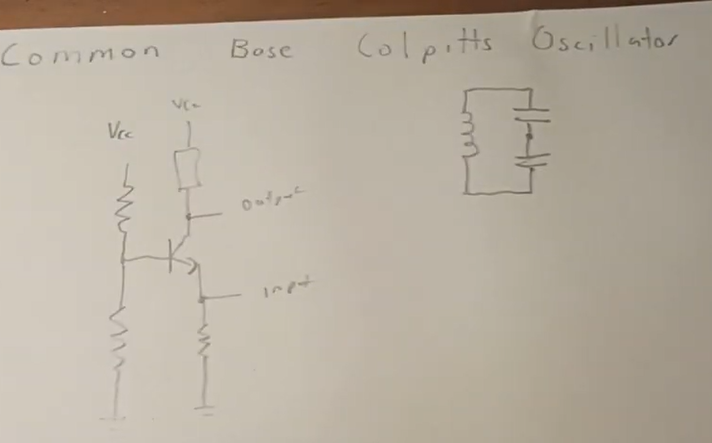 Common Base Colpitts Oscillator
Vcc
Vcc
output
input